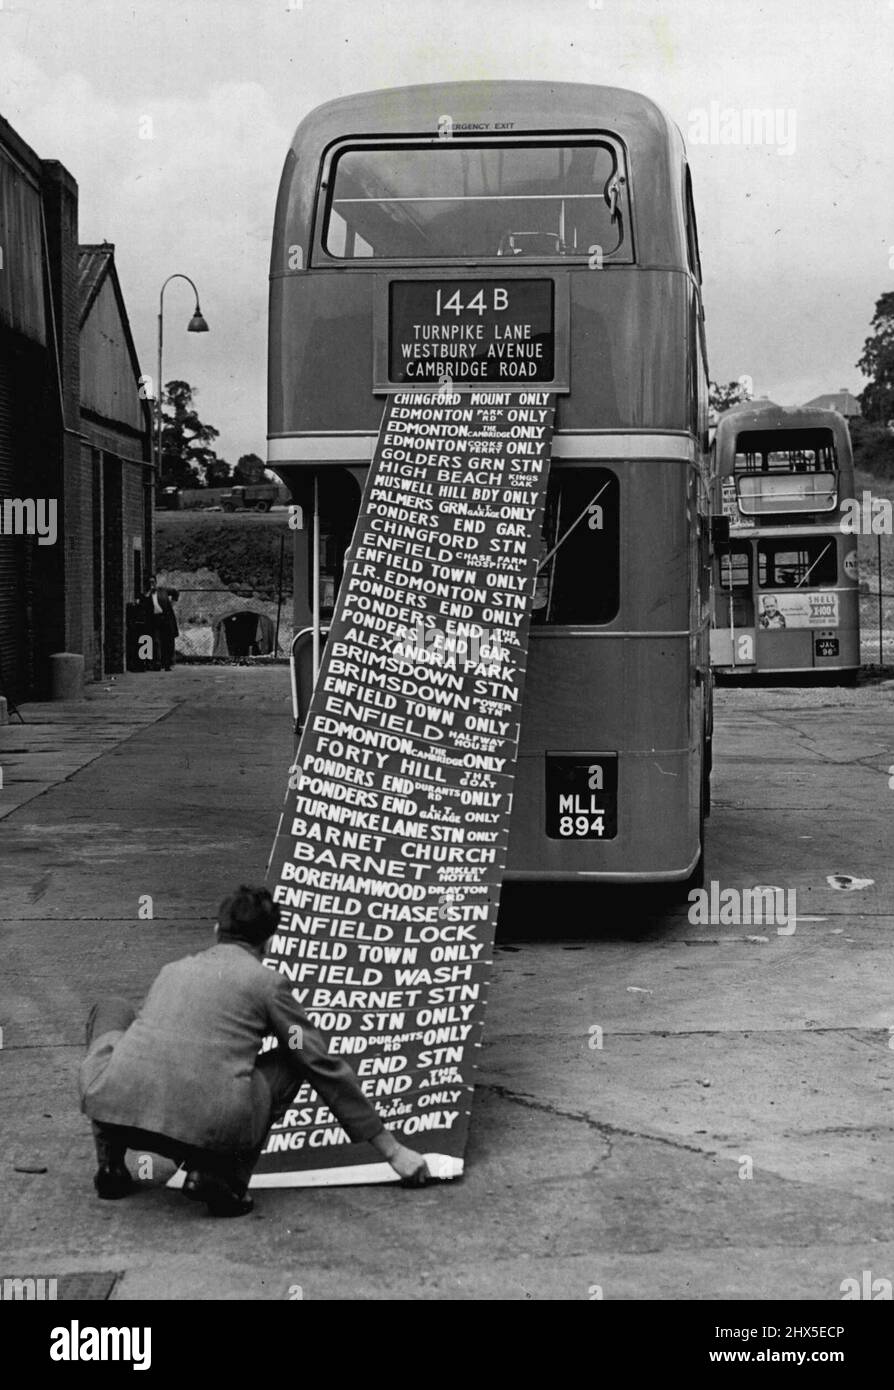 EMERGENCY EXIT
144B
TURNPIKE LANE
WESTBURY AVENUE
CAMBRIDGE ROAD
CHINGFORD MOUNT ONLY
EDMONTON PARK RD ONLY
EDMONTON THE CAMBRIDGE ONLY
EDMONTON COOKS FERRY ONLY
GOLDERS GRN STN
HIGH BEACH KINGS OAK
MUSWELL HILL BDY ONLY
PALMERS GRN L.T. GARAGE ONLY
PONDERS END GAR.
CHINGFORD STN
ENFIELD CHASE FARM HOSPITAL
ENFIELD TOWN ONLY
LR. EDMONTON STN
PONDERS END ONLY
PONDERS END THE ALMA
PONDERS END GAR.
ALEXANDRA PARK
BRIMSDOWN STN
BRIMSDOWN POWER STN
ENFIELD TOWN ONLY
ENFIELD HALFWAY HOUSE
EDMONTON THE CAMBRIDGE ONLY
FORTY HILL THE GOAT
PONDERS END DURANTS RD ONLY
PONDERS END L.T. GARAGE ONLY
TURNPIKE LANE STN ONLY
BARNET CHURCH
BARNET ARKLEY HOTEL
BOREHAMWOOD DRAYTON RD
ENFIELD CHASE STN
ENFIELD LOCK
NFIELD TOWN ONLY
ENFIELD WASH
W BARNET STN
OOD STN ONLY
END DURANTS RD ONLY
END STN
END THE ALMA
ERS E L.T. GARAGE ONLY
LING CNR NET ONLY
MLL
894
SHELL
X-100
JXC
96
alamy
Image ID: 2HX5ECP
www.alamy.com